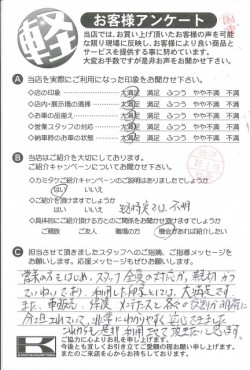 軽
お客様アンケート
当店では、お買い上げ頂いたお客様の声を可能
な限り現場に反映し、お客様により良い商品と
サービスを提供する事に努めています。
大変お手数ですが是非お声をお聞かせ下さい。
A 当店を実際にご利用になった印象をお聞かせ下さい。
○店の印象 大満足 満足 ふつう やや不満 不満
○店内・展示場の清掃 大満足 満足 ふつう やや不満 不満
○お車の品揃え 大満足 満足 ふつう やや不満 不満
○営業スタッフの対応 大満足 満足 ふつう やや不満 不満
○納車時のお車の状態 大満足 満足 ふつう やや不満 不満
B 当店はご紹介を大切にしております。
ご紹介キャンペーンについてお聞かせ下さい。
○カミタウご紹介キャンペーンのご説明はありましたでしょうか
はい いいえ
○ご紹介を頂けますでしょうか
はい いいえ 現時点では、不明
○具体的にご紹介頂ける方とのご関係をお聞かせ頂けますでしょうか
ご親族 ご友人 職場の方 機会があれば紹介したい
C 担当させて頂きましたスタッフへのご指摘、ご指導メッセージを
お願いします。応援メッセージもぜひお願いします。
営業の方をはじめ、スタッフ全員の対応が、親切かつ
ていねいであり、利用した
また、車販売、保険、メンテナスと、
非常にわかりやすく
これからも是非利用させて頂きたいと思います
ご協力に心よりお礼を申し上げます。
今後とも宜しくお引き立てご愛顧の程お願い申し上げます。
またのご来店を心からお待ちしております。